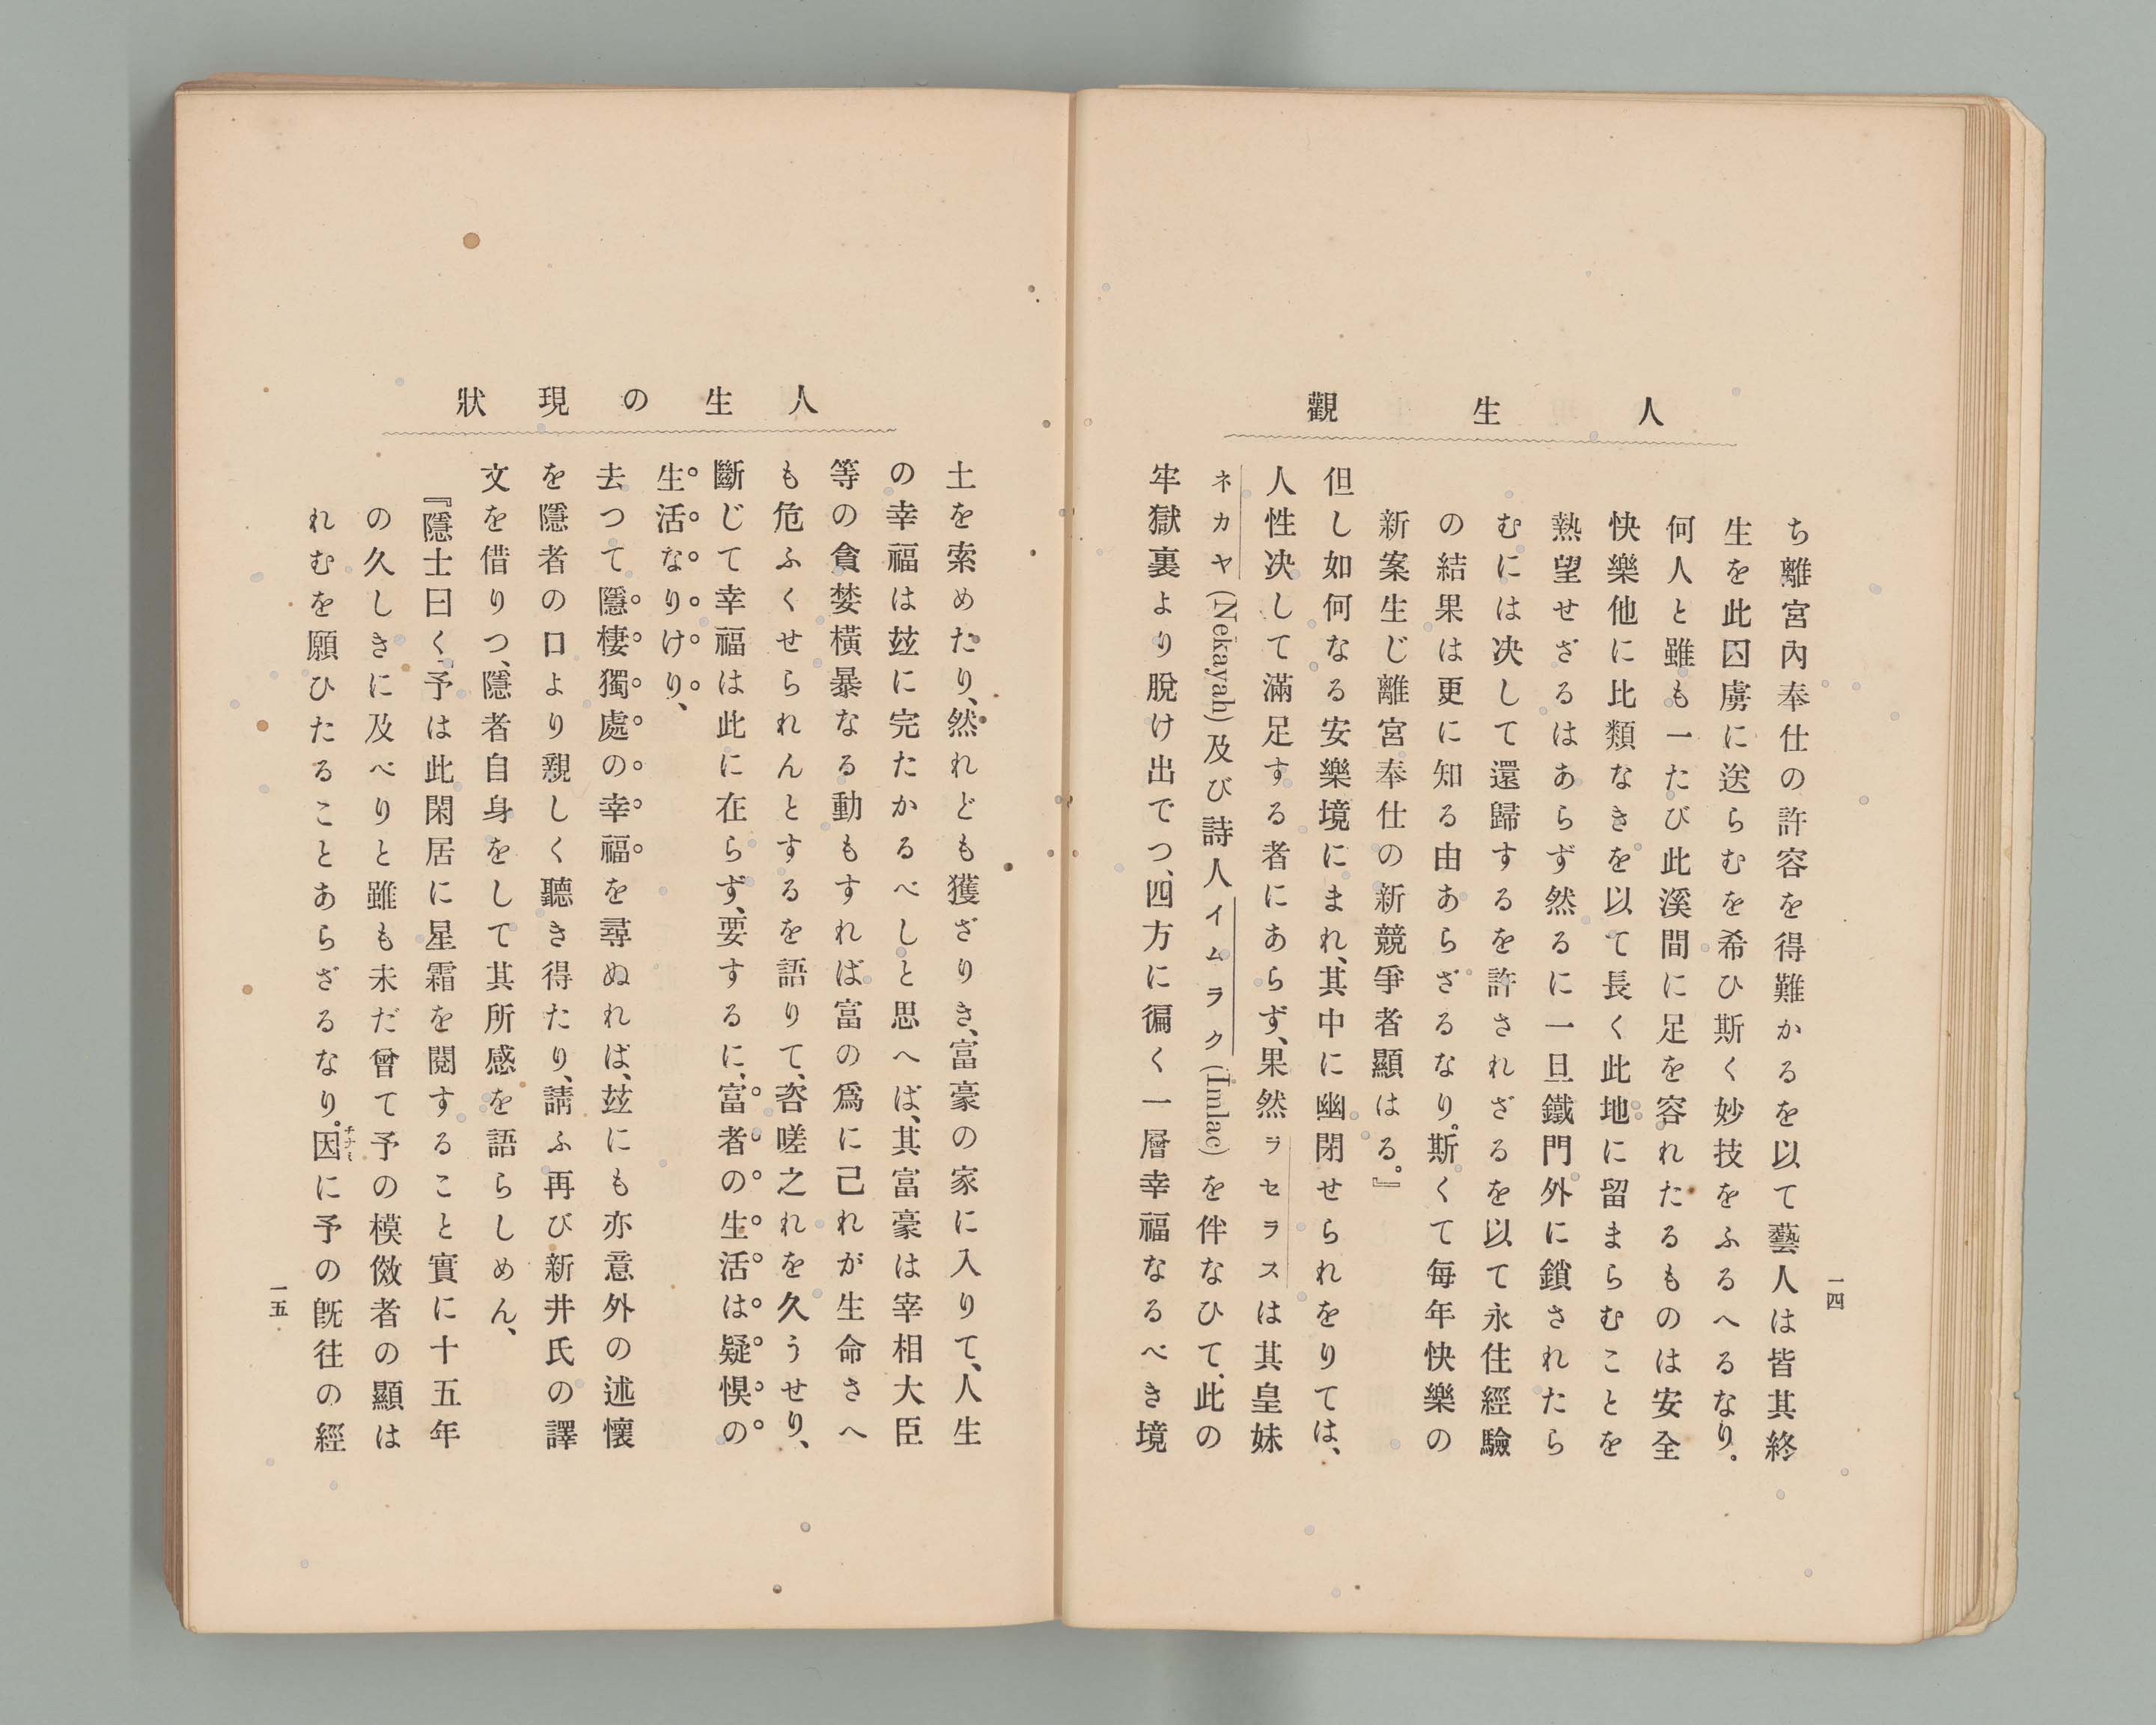 人生觀
一四
ち離宮內奉仕の許容を得難かるを以て藝人は皆其終
生を此囚虜に送らむを希ひ斯く妙技をふるへるなり。
何人と雖も一たび此溪間に足を容れたるものは安全
快樂他に比類なきを以て長く此地に留まらむことを
熱望せざるはあらず然るに一旦鐵門外に鎖されたら
むには决して還歸するを許されざるを以て永住經驗
の結果は更に知る由あらざるなり。斯くて每年快樂の
新案生じ離宮奉仕の新競爭者顯はる。』
但し如何なる安樂境にまれ、其中に幽閉せられをりては、
人性决して滿足する者にあらず、果然ラセラスは其皇妹
ネカヤ(Nekayah)及び詩人イムラク(Imlac)を伴なひて、此の
牢獄裏より脫け出でつ、四方に徧く一層幸福なるべき境
人生の現狀
土を索めたり、然れども獲ざりき、富豪の家に入りて、人生
の幸福は玆に完たかるべしと思へば、其富豪は宰相大臣
等の貪婪橫暴なる動もすれば富の爲に己れが生命さへ
も危ふくせられんとするを語りて、咨嗟之れを久うせり、
斷じて幸福は此に在らず、要するに、富者の生活は疑惧の
生活なりけり、
去つて隱棲獨處の幸福を尋ぬれば、玆にも亦意外の述懷
を隱者の口より親しく聽き得たり、請ふ再び新井氏の譯
文を借りつ、隱者自身をして其所感を語らしめん、
『隱士曰く、予は此閑居に星霜を閱すること實に十五年
の久しきに及べりと雖も未だ曾て予の模傚者の顯は
れむを願ひたることあらざるなり。因チナミに予の旣往の經
一五